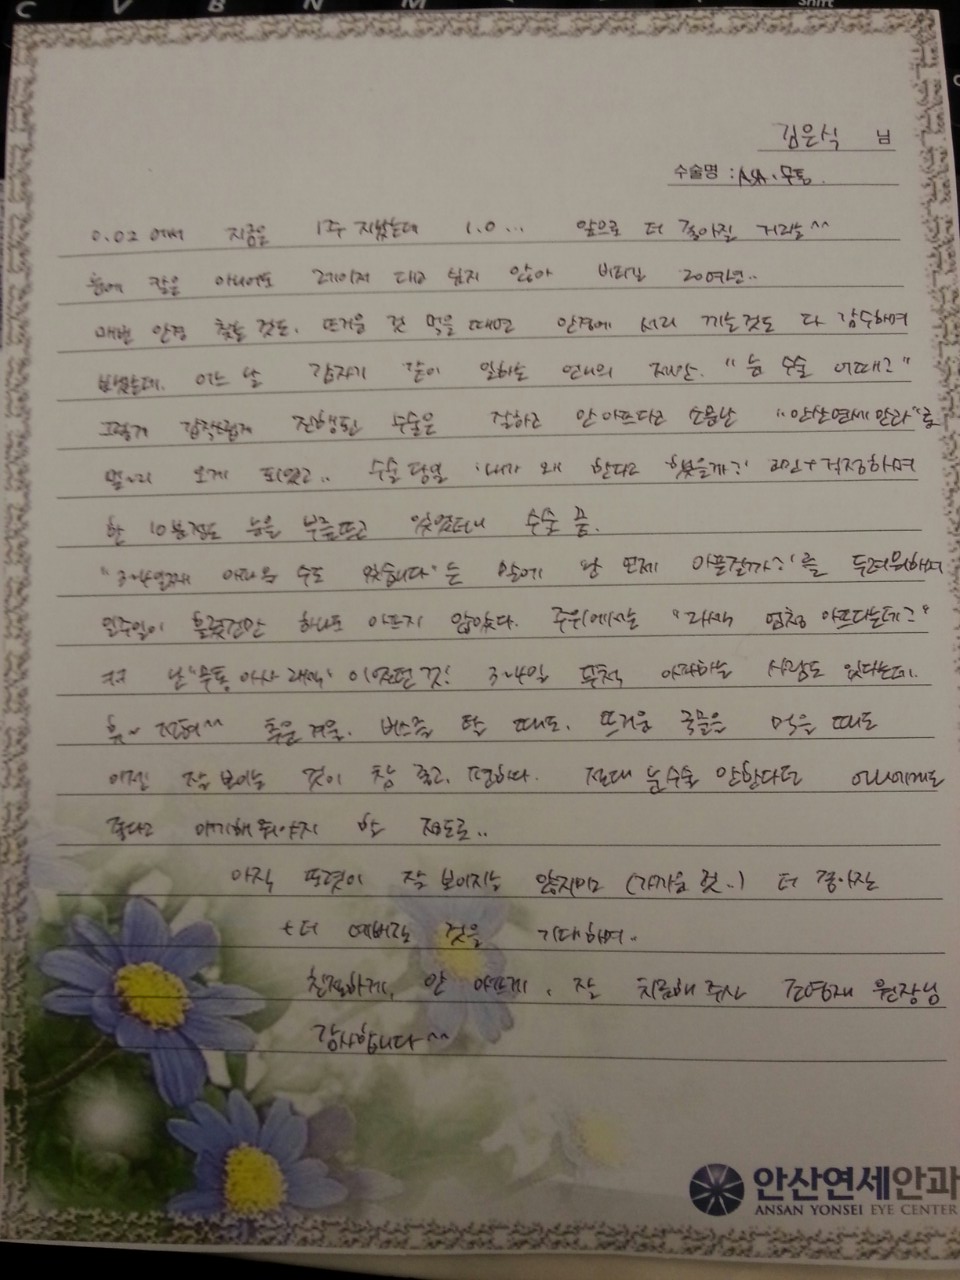 C V B N M Shift
김은식 님
수술명 : ASA. 무통.
0.02 에서 지금은 1주 지났는데 1.0... 앞으로 더 좋아질 거라능^^
눈에 칼은 아니어도 레이저 대고 싶지 않아 버티길 20여년..
매번 안경 찾는 것도, 뜨거운 것 먹을 때면 안경에 서리 끼는것도 다 감수하며
봤는데. 어느 날 갑자기 같이 일하는 언니의 제안. "눈 수술 어때?"
그렇게 갑작스럽게 진행된 수술은 잘하고 안 아프다고 소문난 "안산연세안과"로
멀~리 오게 되었고.. 수술 당일 '내가 왜 한다고 했을까?' 고민+걱정하며
한 10분정도 눈을 부릅뜨고 있었더니 수술 끝.
"3~4일째 아파올 수도 있습니다"는 말에 난 '언제 아플걸까?'를 두려워하며
일주일이 흘렀건만 하나도 아프지 않았다. 주위에서는 "라섹 엄청 아프다는데?"
ㅋㅋ 난 "무통 아사 라섹" 이었던 것! 3~4일 무척 아파하는 사람도 있다는데.
훗~ 전혀^^ 추운 겨울. 버스를 탈 때도, 뜨거운 국물을 먹을 때도
이젠 잘 보이는 것이 참 좋고, 편하다. 절대 눈수술 안한다던 언니에게도
좋다고 얘기해줘야지 할 정도로..
아직 또렷이 잘 보이지는 않지만 (가까운 것..) 더 좋아질
+더 예뻐질 것을 기대하며..
친절하게, 안 아프게, 잘 치료해 주신 조영재 원장님
감사합니다^^
안산연세안과
ANSAN YONSEI EYE CENTER